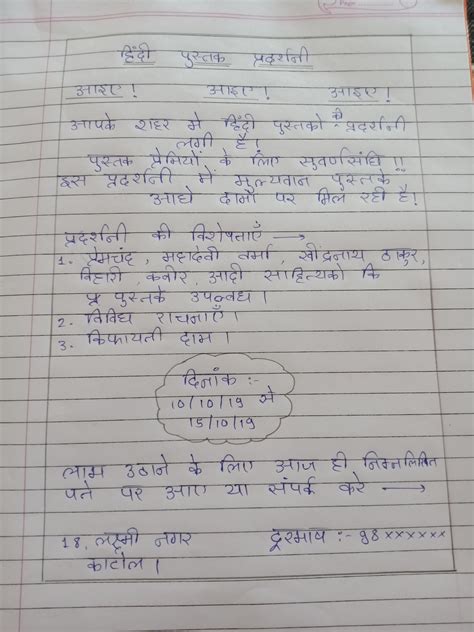 हिंदी पुस्तक प्रदर्शनी
आइए! आइए! आइए!
आपके शहर मे हिंदी पुस्तको की प्रदर्शनी
लगी है!
पुस्तक प्रेमियों के लिए सुवर्णसंधि!!
इस प्रदर्शनी में मुल्यवान पुस्तके
आधे दामों पर मिल रही है!
प्रदर्शनी की विशेषताएँ →
1. प्रेमचंद, महादेवी वर्मा, रवींद्रनाथ ठाकुर,
बिहारी, कबीर, आदी साहित्यको कि
पुस्तके उपलब्ध।
2. विविध रचनाएँ।
3. किफायती दाम।
दिनांक :-
10/10/19 से
15/10/19
लाभ उठाने के लिए आज ही निम्नलिखित
पते पर आए या संपर्क करे →
18, लक्ष्मी नगर दूरभाष :- 98xxxxxx
काटोल।